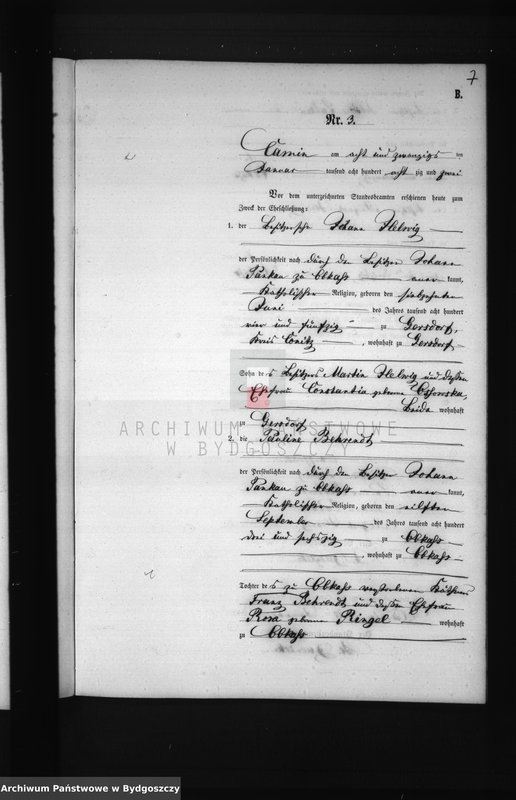 7
B.
Nr. 3.
Camin am acht und zwanzigsten
Januar tausend acht hundert achtzig und zwei
Vor dem unterzeichneten Standesbeamten erschienen heute zum
Zweck der Eheschließung:
1. der Besitzersohn Johann Helwig
der Persönlichkeit nach durch den Besitzer Johann
Pankau zu Obkaß anerkannt,
katholischer Religion, geboren den siebzehnten
Juni des Jahres tausend acht hundert
vier und fünfzig zu Gersdorf,
Kreis Conitz, wohnhaft zu Gersdorf
Sohn des Besitzers Martin Helwig und dessen
Ehefrau Constantia geborne
Beide wohnhaft
zu Gersdorf
2. die Pauline Behrendt
der Persönlichkeit nach durch den Besitzer Johann
Pankau zu Obkaß anerkannt,
katholischer Religion, geboren den eilften
September des Jahres tausend acht hundert
drei und sechszig zu Obkaß
, wohnhaft zu Obkaß
Tochter des zu Obkaß verstorbenen Käthner
Franz Behrendt und dessen Ehefrau
Rosa geborne Ringel wohnhaft
zu Obkaß
ARCHIWUM PAŃSTWOWE
W BYDGOSZCZY
Archiwum Państwowe w Bydgoszczy